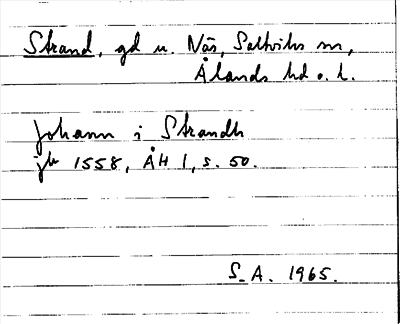 Strand, gd u. Näs, Saltviks sn,
Ålands hd o. l.
Johann i Strandh
jb 1558, ÅH 1, s. 50.
S.A. 1965.